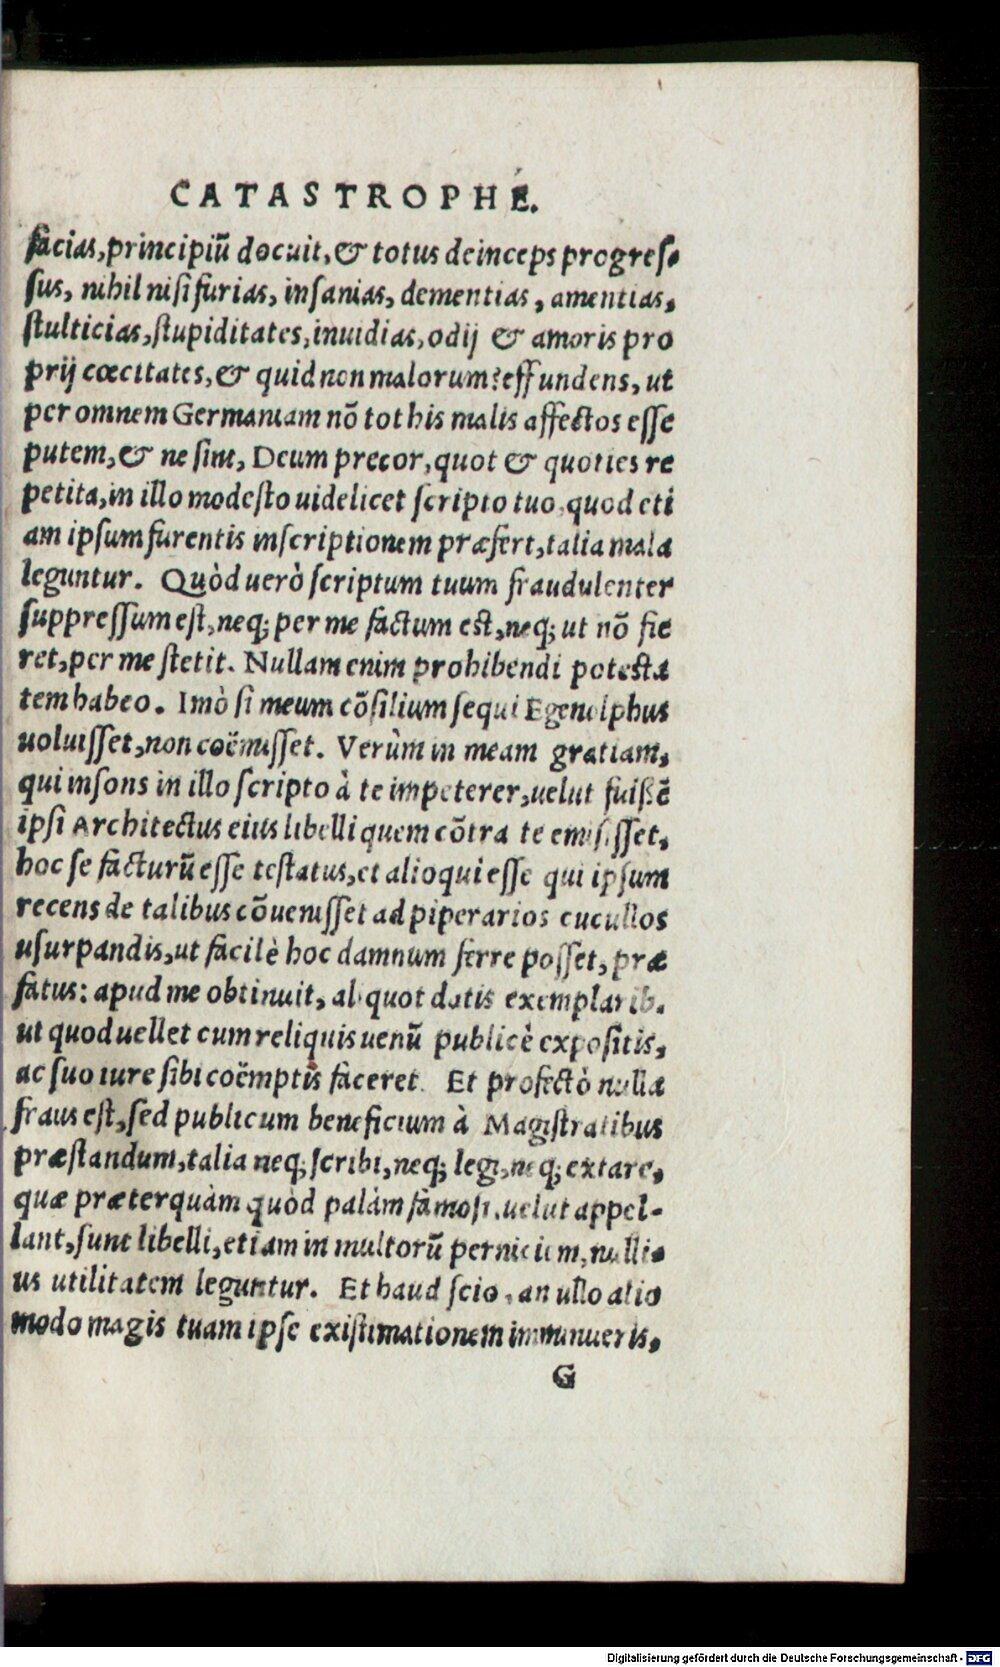 CATASTROPHE.
facias, principiũ docuit, & totus deinceps progres-
sus, nihil nisi furias, insanias, dementias, amentias,
stulticias, stupiditates, inuidias, odij & amoris pro
prij cœcitates, & quid non malorum? effundens, ut
per omnem Germaniam nõ tot his malis affectos esse
putem, & ne sint, Deum precor, quot & quoties re
petita, in illo modesto uidelicet scripto tuo, quod eti
am ipsum furentis inscriptionem præfert, talia mala
leguntur. Quòd uerò scriptum tuum fraudulenter
suppressum est, neq; per me factum est, neq; ut nõ fie
ret, per me stetit. Nullam enim prohibendi potesta
tem habeo. Imò si meum cõsilium sequi Egenolphus
uoluisset, non coëmisset. Verùm in meam gratiam,
qui insons in illo scripto à te impeterer, uelut fuißẽ
ipsi Architectus eius libelli quem cõtra te emisisset,
hoc se facturũ esse testatus, et alioqui esse qui ipsum
recens de talibus cõuenisset ad piperarios cucullos
usurpandis, ut facilè hoc damnum ferre posset, præ
fatus: apud me obtinuit, aliquot datis exemplarib.
ut quod uellet cum reliquis uenũ publicè expositis,
ac suo iure sibi coëmptis faceret. Et profectò nulla
fraus est, sed publicum beneficium à Magistratibus
præstandum, talia neq; scribi, neq; legi, neq; extare,
quæ præterquàm quòd palàm famosi, uelut appel-
lant, sunt libelli, etiam in multorũ perniciem, nulli-
us utilitatem leguntur. Et haud scio, an ullo alio
modo magis tuam ipse existimationem imminueris,
G
Digitalisierung gefördert durch die Deutsche Forschungsgemeinschaft - DFG